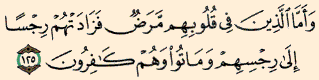 وَأَمَّا ٱلَّذِينَ فِى قُلُوبِهِم مَّرَضٌ فَزَادَتْهُمْ رِجْسًا
إِلَىٰ رِجْسِهِمْ وَمَاتُوا۟ وَهُمْ كَـٰفِرُونَ ١٢٥